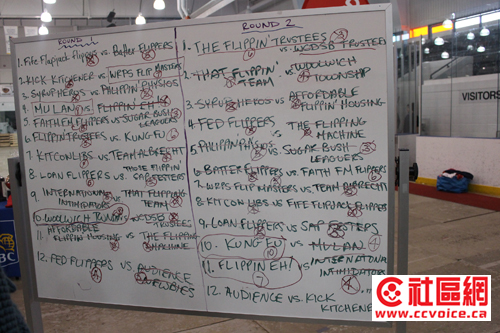 ROUND 1
1. Fife Flapjack Flippers vs. Batter Flippers
2. KICK KITCHENER vs NRPS FLIP MASTERS
3. SYRUP HEROS vs PHILIPPIN' PHYSIOS
4. MULAN vs FLIPPIN' EH
5. FAITH FM FLIPPERS vs SUGAR BUSH
LEAGUERS
6. FLIPPIN' TRUSTEES vs KUNG FU
7. KITCON LIBS vs TEAM ALBRECHT
8. LOAN FLIPPERS vs THOSE FLIPPIN'
SAP FESTERS
9. INTERNATIONAL
INTIMIDATORS vs THAT FLIPPIN'
TEAM
10. WOOLWICH TOWNSHIP vs WCDSB
TRUSTEES
11. AFFORDABLE
FLIPPIN HOUSING vs THE FLIPPIN
MACHINE
12. FED FLIPPERS vs AUDIENCE
NEWBIES
ROUND 2
1. THE FLIPPIN' TRUSTEES
vs WCDSB TRUSTEES
2. THAT FLIPPIN' vs WOOLWICH
TEAM TOWNSHIP
3. SYRUP HEROS vs AFFORDABLE
FLIPPIN' HOUSING
4. FED FLIPPERS vs THE FLIPPING
MACHINE
5. PHILIPPIN PHYSIOS vs SUGAR BUSH
LEAGUERS
6. BATTER FLIPPERS vs FAITH FM FLIPPERS
7. NRPS FLIP MASTERS vs TEAM ALBRECHT
8. KITCON LIBS vs FIFE FLAPJACK FLIPPERS
9. LOAN FLIPPERS vs SAP FESTERS
10. KUNG FU vs MULAN
10 4
11. FLIPPIN EH! vs INTERNATIONAL
INTIMIDATORS
7
12. AUDIENCE vs. KICK
KITCHENER
VISITORS
RBC
社區網
www.ccvoice.ca